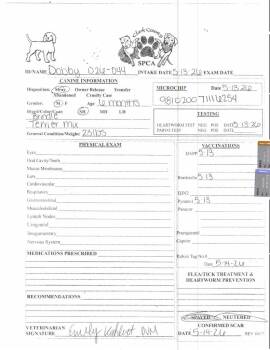 Clark County
SPCA
ID/NAME Dobby 026-044 INTAKE DATE 5-13-26 EXAM DATE
CANINE INFORMATION
Disposition: Stray Owner Release Transfer
Abandoned Cruelty Case
MICROCHIP Date 5-13-26
Gender: M F Age 6 months
Brindle
Terrier Mix
General Condition/Weight:
TESTING
HEARTWORM TEST NEG POS DATE
PARVO TEST NEG POS DATE
PHYSICAL EXAM
VACCINATIONS
Eyes
DAPP 5-13
Oral Cavity/Teeth
Mucus Membranes
Ears
Bordetella 5-13
Cardiovascular
Respiratory
Gastrointestinal
Pyrantel 5-13
Musculoskeletal
Panacur
Lymph Nodes
Urogenital
Praziquantel
Integumentary
Capstar
Nervous System
MEDICATIONS PRESCRIBED
Rabies Tag No.#
Date 5-14-26
FLEA/TICK TREATMENT &
HEARTWORM PREVENTION
RECOMMENDATIONS
SPAYED NEUTERED
CONFIRMED SCAR
VETERINARIAN
SIGNATURE DVM
DATE 5-14-26